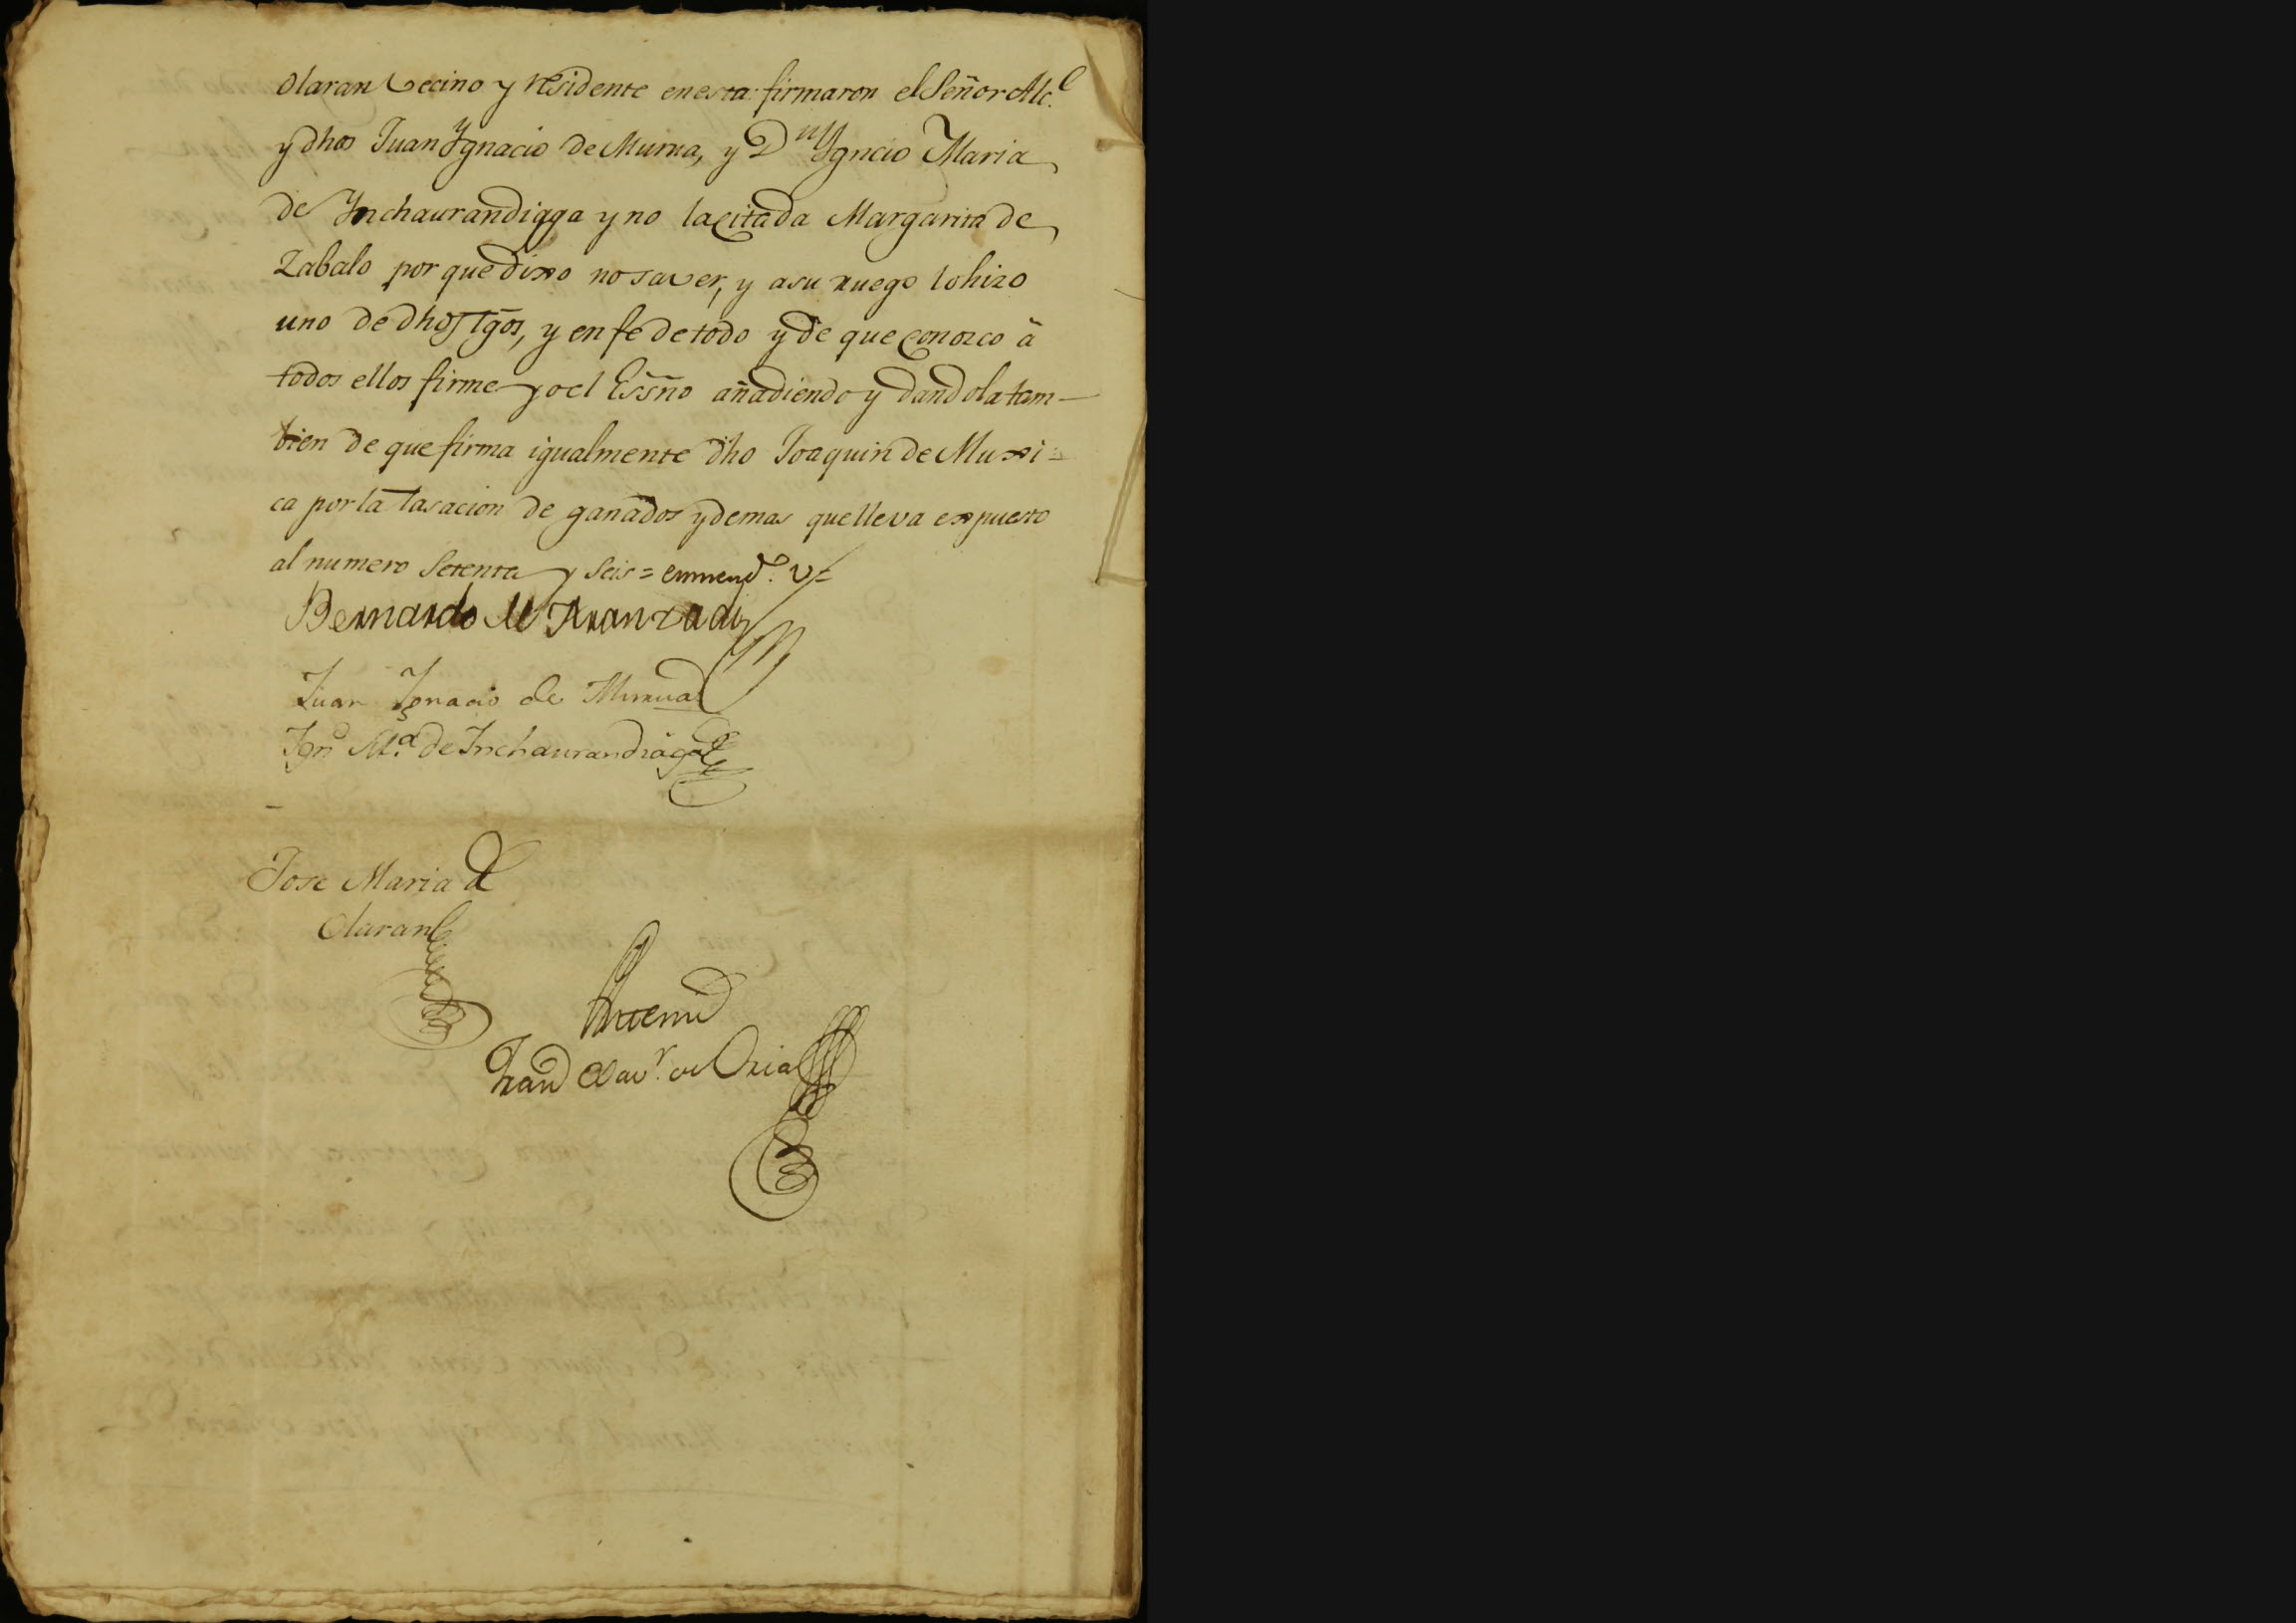 Olaran Vecino y residente en esta: firmaron el Señor Alc.e
y dhos Juan Ygnacio de Murua, y Dn Ygncio Maria
de Ynchaurandiaga y no la citada Margarita de
Zabalo por que dixo no saver, y a su ruego lo hizo
uno de dhos Tgõs, y en fe de todo y de que conozco â
todos ellos firme yo el Essño añadiendo y dandola tam-
bien de que firma igualmente dho Joaquin de Muxi=
ca por la tasacion de ganados y demas que lleva expuesto
al numero setenta y seis = enmendo. v=
Bernardo de Aranzadi
Juan Ygnacio de Murua
Igno Ma. de Inchaurandiaga
Jose Maria de
Olaran
Antemi
Franco Xavr. de Oria